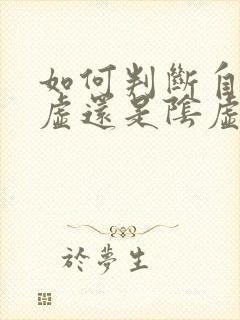 如何判斷自
虛還是陰虛
於夢生